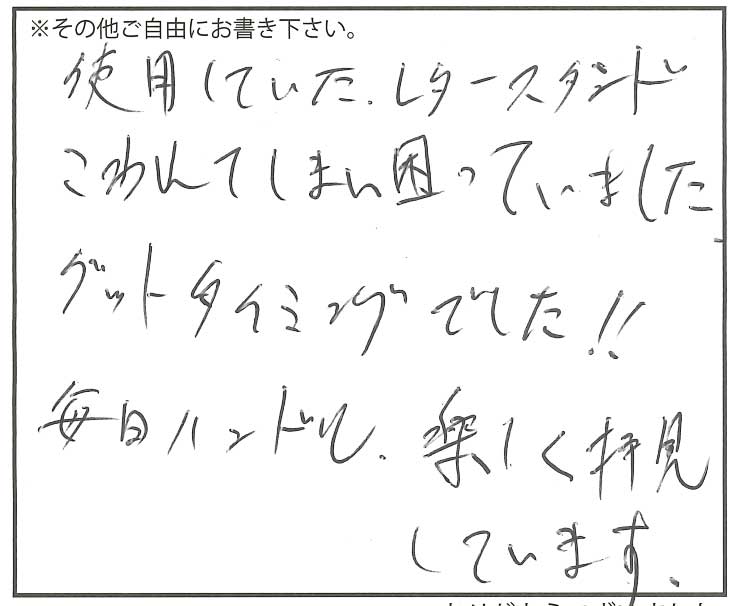 ※その他ご自由にお書き下さい。
使用していた、レタースタンド
こわれてしまい困っていました
グットタイミングでした!!
毎日ハンドも、楽しく拝見
しています。